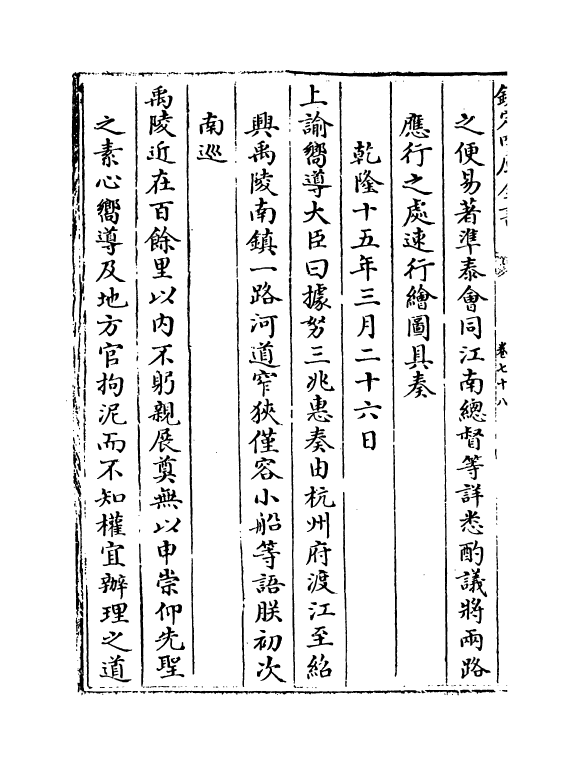 欽定四庫全書
卷七十八
之便易著準泰會同江南總督等詳悉酌議將兩路
應行之處速行繪圖具奏
乾隆十五年三月二十六日
上諭嚮導大臣曰據努三兆惠奏由杭州府渡江至紹
興禹陵南鎮一路河道窄狹僅容小船等語朕初次
南巡
禹陵近在百餘里以内不躬親展奠無以申崇仰先聖
之素心嚮導及地方官拘泥而不知權宜辦理之道